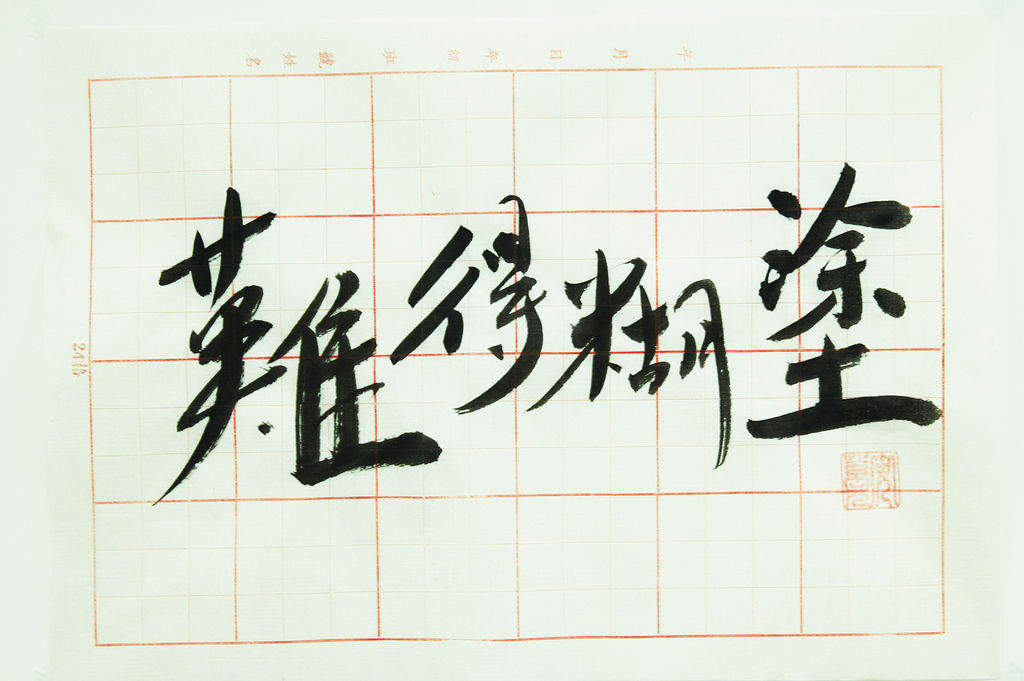 年 月 日 年 級 班 號 姓 名
難得糊塗